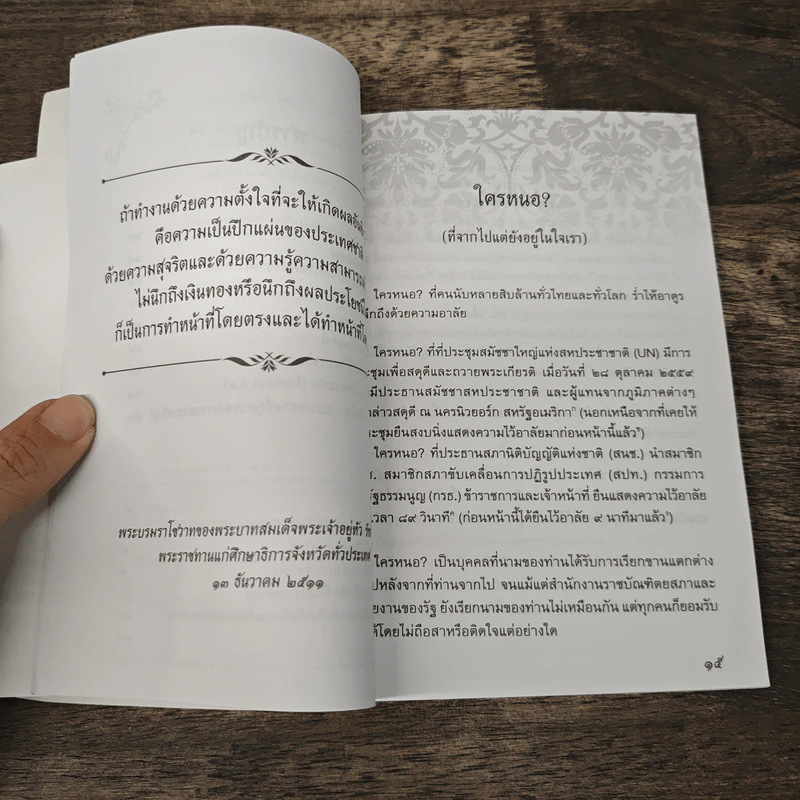 ถ้าทำงานด้วยความตั้งใจที่จะให้เกิดผล
คือความเป็นปึกแผ่นของประเทศ
ด้วยความสุจริตและด้วยความรู้ความสามารถ
ไม่นึกถึงเงินทองหรือนึกถึงผลประโยชน์
ก็เป็นการทำหน้าที่โดยตรงและได้ทำหน้าที่
พระบรมราโชวาทของพระบาทสมเด็จพระเจ้าอยู่หัว
พระราชทานแก่ศึกษาธิการจังหวัดทั่วประเทศ
๑๓ ธันวาคม ๒๕๑๑
ใครหนอ?
(ที่จากไปแต่ยังอยู่ในใจเรา)
ใครหนอ? ที่คนนับหลายสิบล้านทั่วไทยและทั่วโลก ร่ำไห้อาดูร
นึกถึงด้วยความอาลัย
ใครหนอ? ที่ที่ประชุมสมัชชาใหญ่แห่งสหประชาชาติ (UN) มีการ
ชุมเพื่อสดุดีและถวายพระเกียรติ เมื่อวันที่ ๒๘ ตุลาคม ๒๕๕๙
มีประธานสมัชชาสหประชาชาติ และผู้แทนจากภูมิภาคต่างๆ
ล่าวสดุดี ณ นครนิวยอร์ก สหรัฐอเมริกา (นอกเหนือจากที่เคยให้
ะชุมยืนสงบนิ่งแสดงความไว้อาลัยมาก่อนหน้านี้แล้ว)
ใครหนอ? ที่ประธานสภานิติบัญญัติแห่งชาติ (สนช.) นำสมาชิก
ช. สมาชิกสภาขับเคลื่อนการปฏิรูปประเทศ (สปท.) กรรมการ
รัฐธรรมนูญ (กรธ.) ข้าราชการและเจ้าหน้าที่ ยืนแสดงความไว้อาลัย
เวลา ๘๙ วินาที (ก่อนหน้านี้ได้ยืนไว้อาลัย ๙ นาทีมาแล้ว)
ใครหนอ? เป็นบุคคลที่นามของท่านได้รับการเรียกขานแตกต่าง
ปหลังจากที่ท่านจากไป จนแม้แต่สำนักงานราชบัณฑิตยสภาและ
ยงานของรัฐ ยังเรียกนามของท่านไม่เหมือนกัน แต่ทุกคนก็ยอมรับ
ได้โดยไม่ถือสาหรือติดใจแต่อย่างใด
๑๕